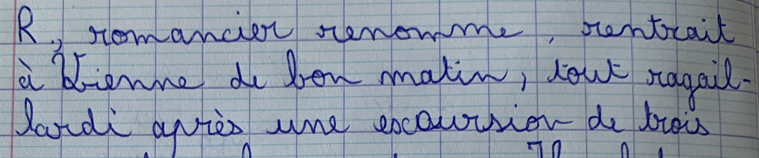 R, romancier renomme, rentrait
à Vienne de bon matin, tout ragail-
lardi après une excursion de trois